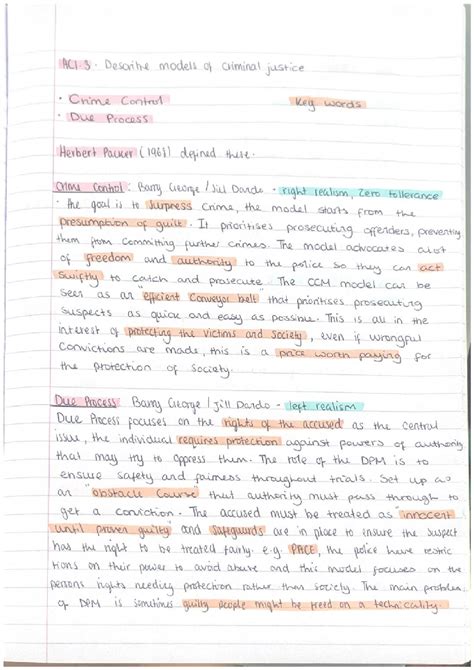 AC1.3. Describe models of criminal justice
· Crime Control Key words
· Due Process
Herbert Packer (1968) defined these.
Crime Control: Barry George / Jill Dando - right realism, zero tollerance
· The goal is to surpress crime, the model starts from the
presumption of guilt. It prioritises prosecuting offenders, preventing
them from committing further crimes. The model advocates alot
of freedom and authority to the police so they can act
swiftly to catch and prosecute. The CCM model can be
seen as an "efficient conveyor belt" that prioritises prosecuting
suspects as quick and easy as possible. This is all in the
interest of protecting the victims and society, even if wrongful
convictions are made, this is a price worth paying for
the protection of society.
Due Process: Barry George / Jill Dando - left realism
Due Process focuses on the rights of the accused as the central
issue, the individual requires protection against powers of authority
that may try to oppress them. The role of the DPM is to
ensure safety and fairness throughout trials. Set up as
an "obstacle course" that authority must pass through to
get a conviction. The accused must be treated as "innocent
until proven guilty" and safeguards are in place to ensure the suspect
has the right to be treated fairly. e.g. PACE, the police have restric
tions on their power to avoid abuse and this model focuses on the
persons rights needing protection rather than society. The main problem
of DPM is sometimes guilty people might be freed on a technicality.